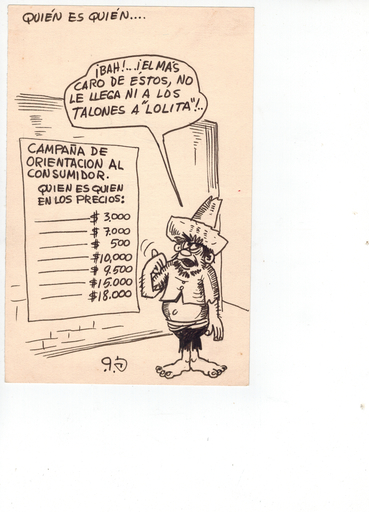 QUIÉN ES QUIÉN....
¡BAH!...¡EL MAS
CARO DE ESTOS, NO
LE LLEGA NI A LOS
TALONES A "LOLITA"!..
CAMPAÑA DE
ORIENTACION AL
CONSUMIDOR.
QUIEN ES QUIEN
EN LOS PRECIOS:
$ 3,000
$ 7.000
$ 500
$10,000
$ 9.500
$15.000
$18.000